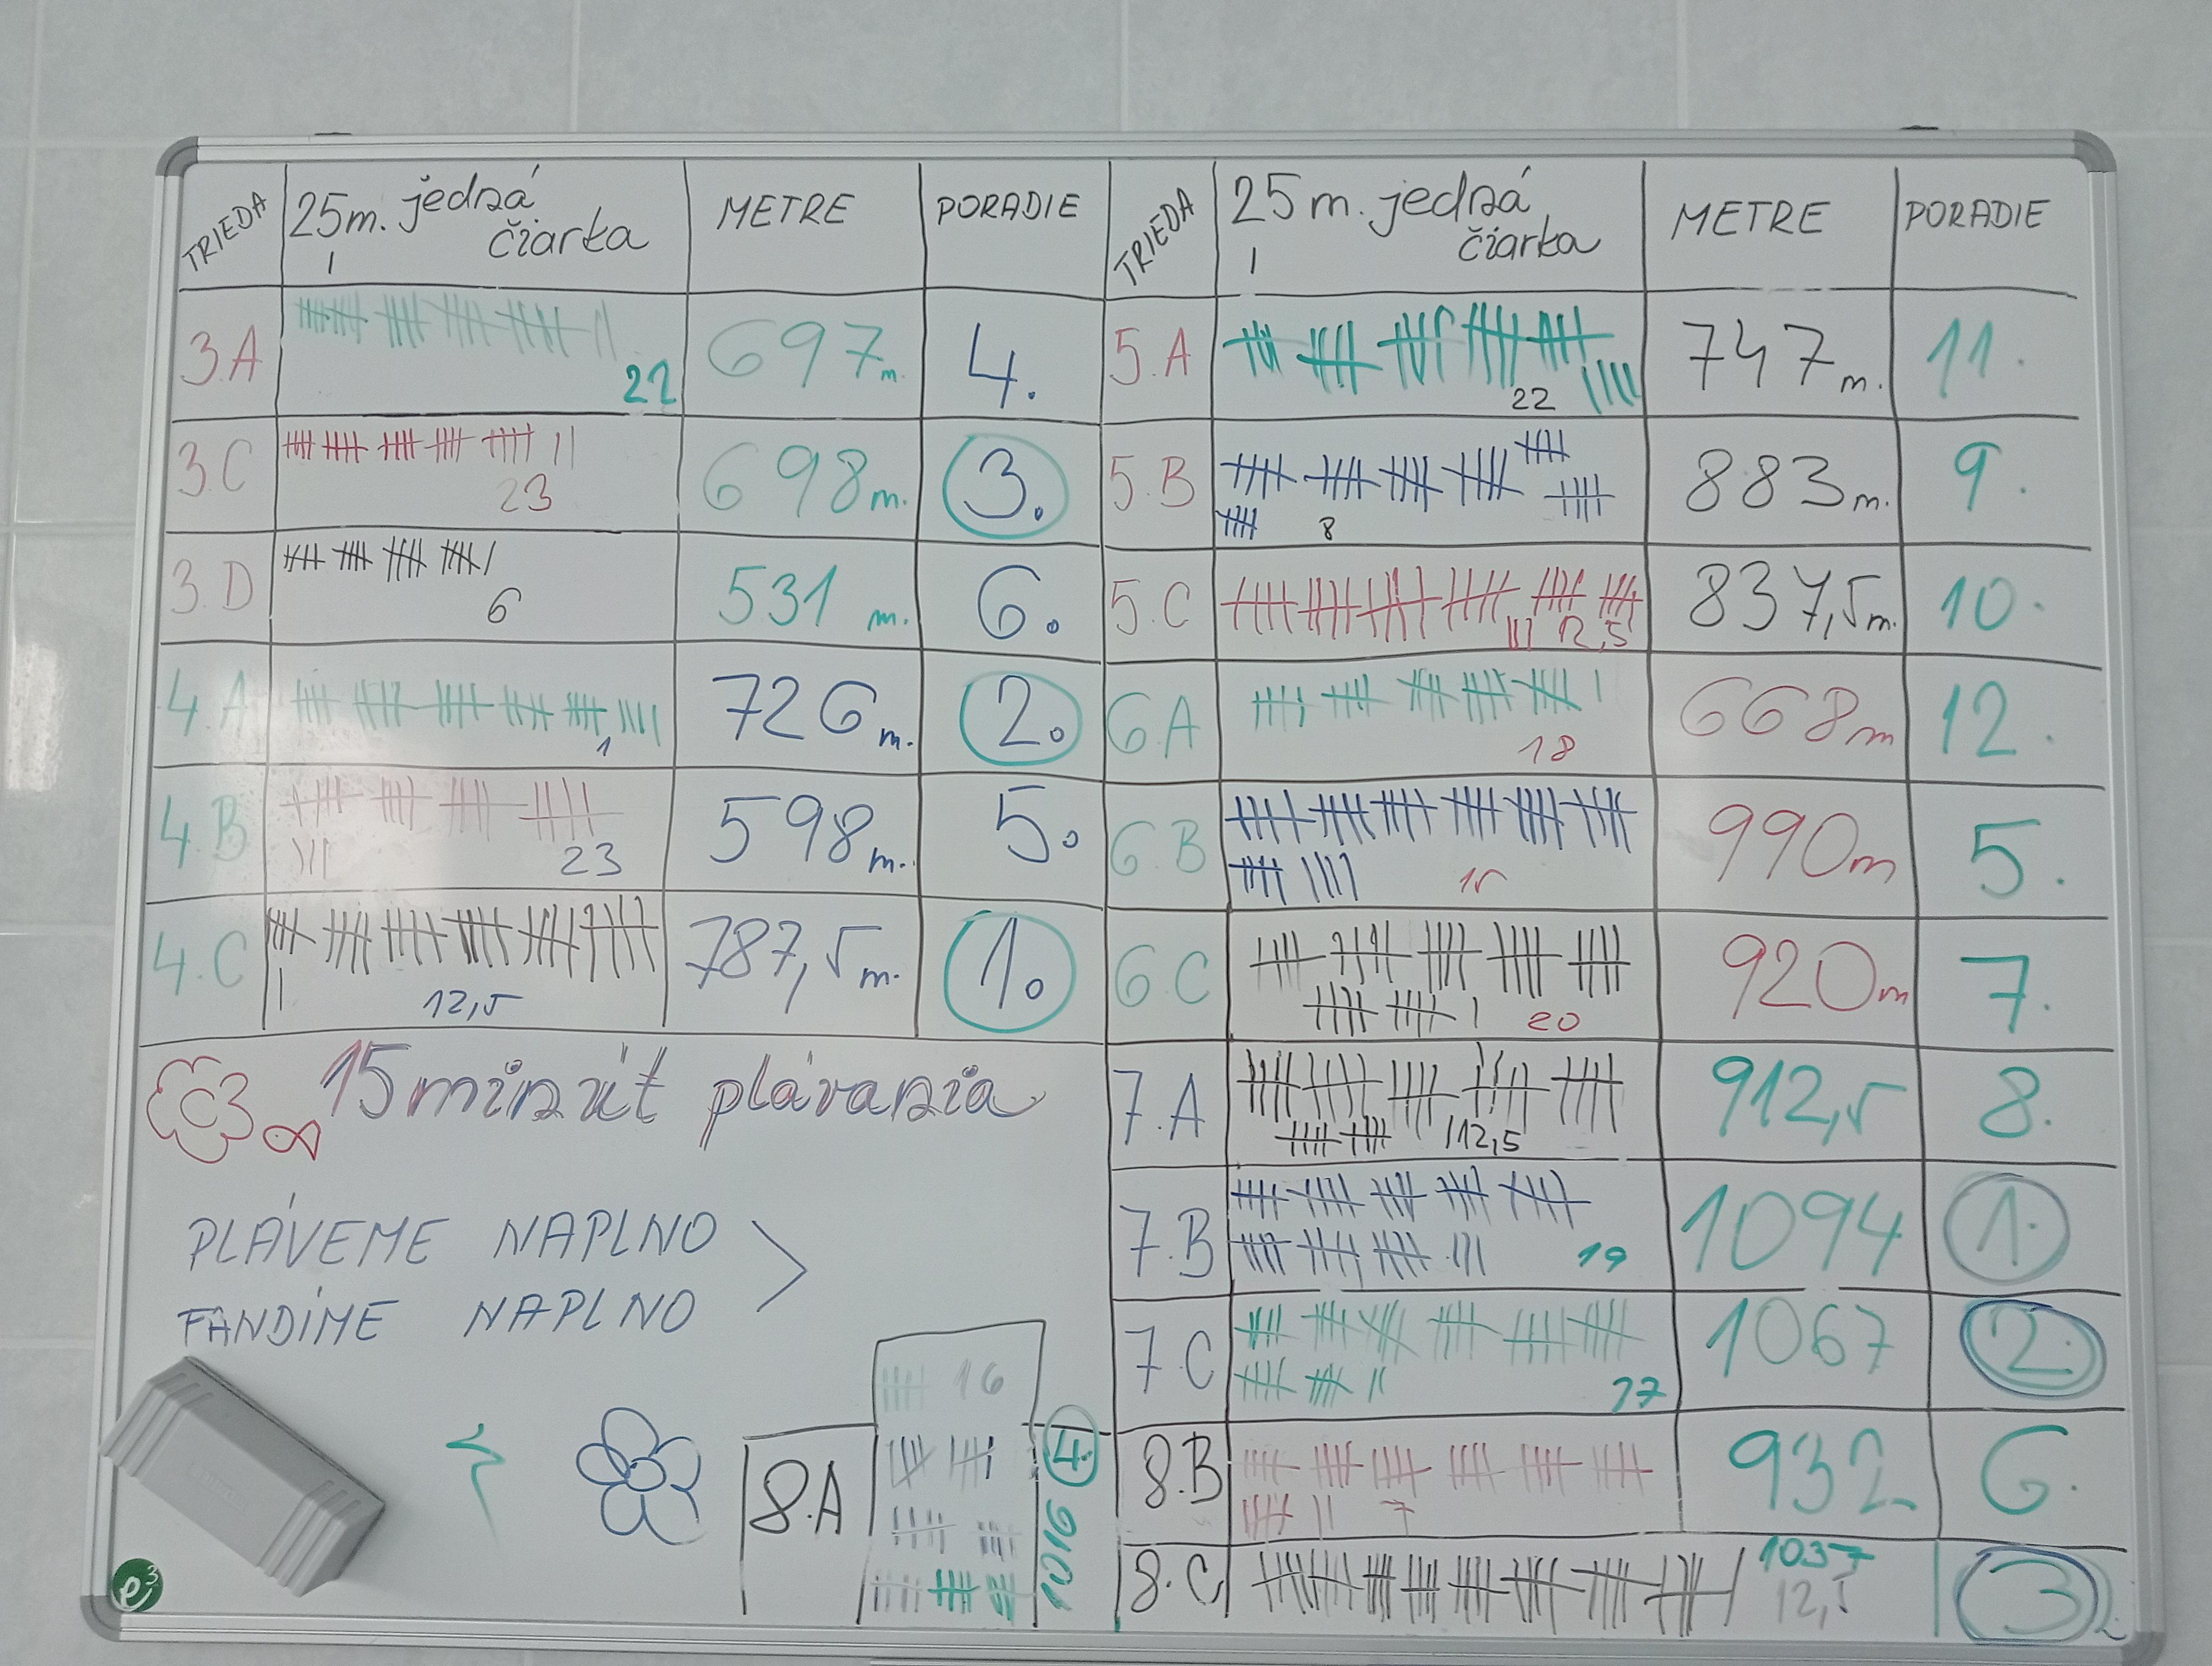 TRIEDA 25m. jedná čiarka METRE PORADIE
3.A 22 697 m. 4.
3.C 23 698 m. 3.
3.D 6 531 m. 6.
4.A 1 726 m. 2.
4.B 23 598 m. 5.
4.C 12,5 787,5 m. 1.
15 minút plávania
PLÁVEME NAPLNO
FANDÍME NAPLNO
8.A 16 1016 4.
TRIEDA 25m. jedná čiarka METRE PORADIE
5.A 22 747 m. 11.
5.B 8 883 m. 9.
5.C 12,5 837,5 m. 10.
6.A 18 668 m 12.
6.B 15 990 m 5.
6.C 20 920 m 7.
7.A 12,5 912,5 8.
7.B 19 1094 1.
7.C 17 1067 2.
8.B 7 932 6.
8.C 1037 12,5 3.
e³